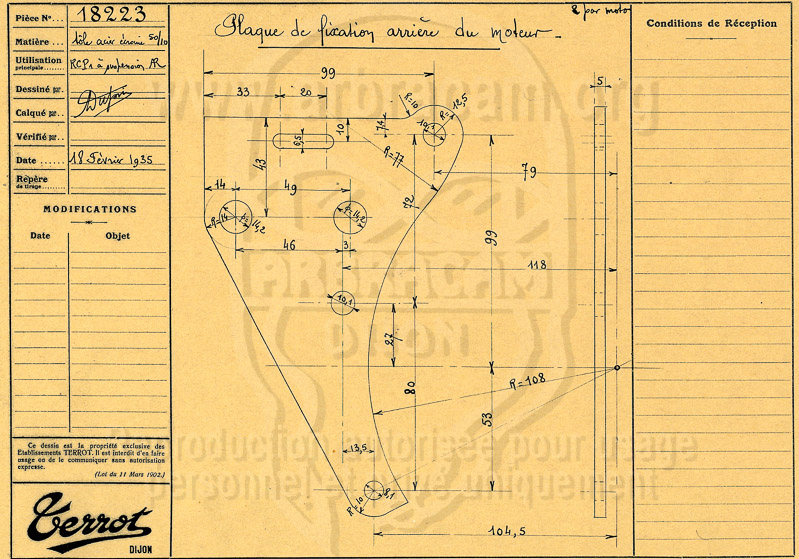 Pièce N°... 18223
Matière... tôle acier écroui 50/10
Utilisation
principale... RCP1 à propension AR
Dessiné par...
Calqué par...
Vérifié par...
Date ...... 18 Février 1935
Repère
de tirage...
MODIFICATIONS
Date Objet
Ce dessin est la propriété exclusive des
Etablissements TERROT. Il est interdit d'en faire
usage ou de le communiquer sans autorisation
expresse.
(Loi du 11 Mars 1902.)
Terrot
DIJON
Plaque de fixation arrière du moteur
2 par moto
Conditions de Réception
www.arbracam.org
99
33 20
R=10
12,5
5
6,5
10
14
10,1
R=77
43
79
14 49
72
R=14
14,2
R=14,2
99
46 3
118
10,1
27
R=108
80
53
13,5
R=10
8,1
104,5
ARBRACAM
DIJON
Reproduction autorisée pour usage
personnel et privé uniquement